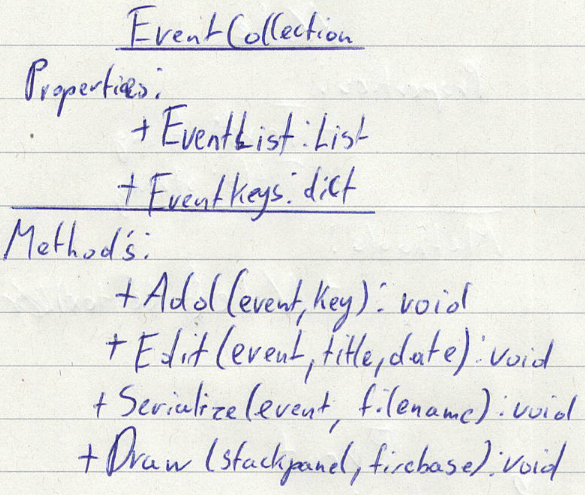 EventCollection
Properties:
+ EventList: List
+ EventKeys: dict
Method's:
+ Add (event, key): void
+ Edit (event, title, date): void
+ Serialize (event, filename): void
+ Draw (stackpanel, firebase): void